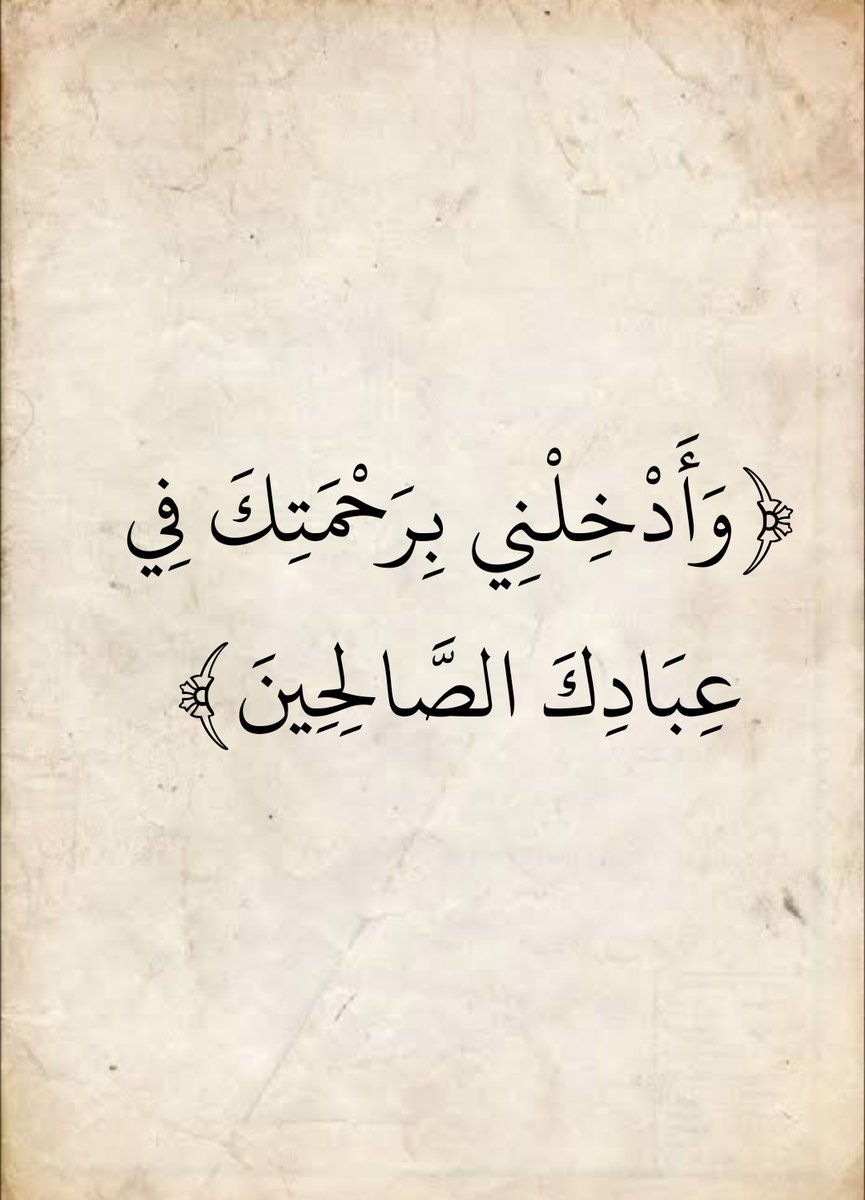 ﴿وَأَدْخِلْنِي بِرَحْمَتِكَ فِي
عِبَادِكَ الصَّالِحِينَ﴾